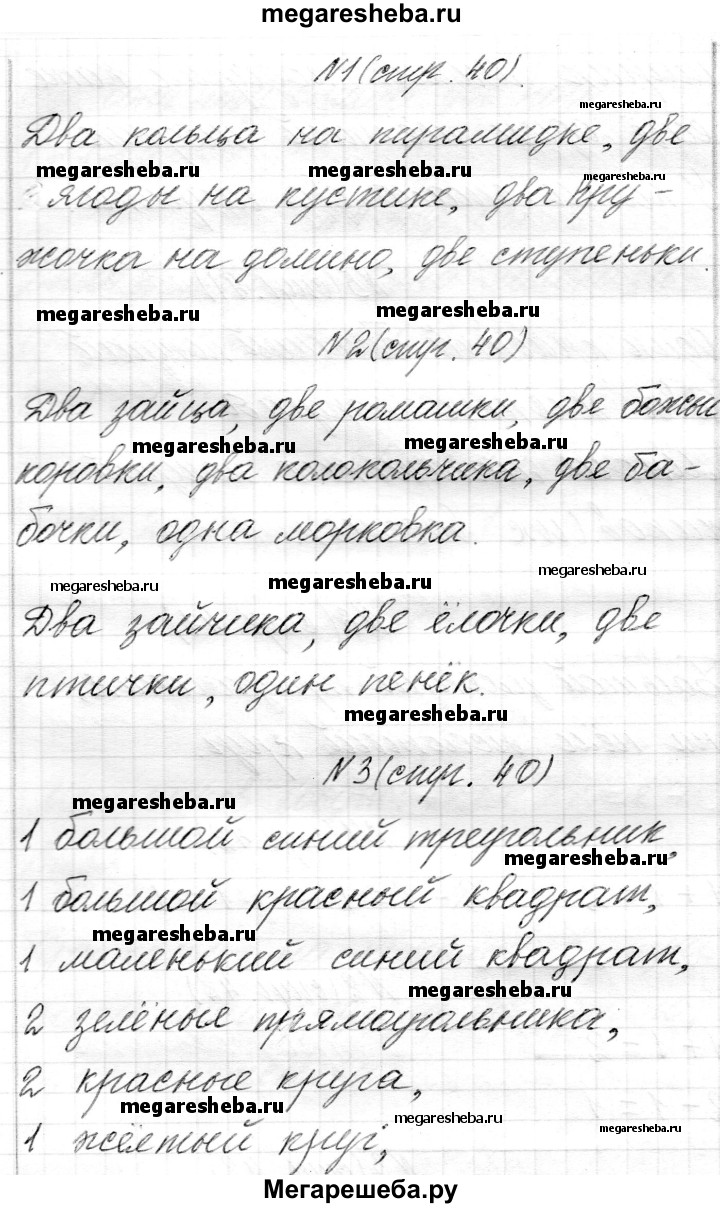 megaresheba.ru
N1(стр. 40).
megaresheba.ru
Два кольца на пирамидке, две
megaresheba.ru megaresheba.ru megaresheba.ru
ягоды на кустике, два кру-
жочка на домино, две ступеньки.
megaresheba.ru megaresheba.ru
N2(стр. 40)
Два зайца, две ромашки, две божьи
megaresheba.ru megaresheba.ru
коровки, два колокольчика, две ба-
бочки, одна морковка.
megaresheba.ru megaresheba.ru megaresheba.ru
Два зайчика, две ёлочки, две
птички, один пенёк.
megaresheba.ru
N3(стр. 40)
megaresheba.ru
1 большой синий треугольник,
megaresheba.ru
1 большой красный квадрат,
megaresheba.ru
1 маленький синий квадрат,
megaresheba.ru
2 зелёные прямоугольника,
2 красные круга,
megaresheba.ru megaresheba.ru megaresheba.ru
1 жёлтый круг,
Мегарешеба.ру